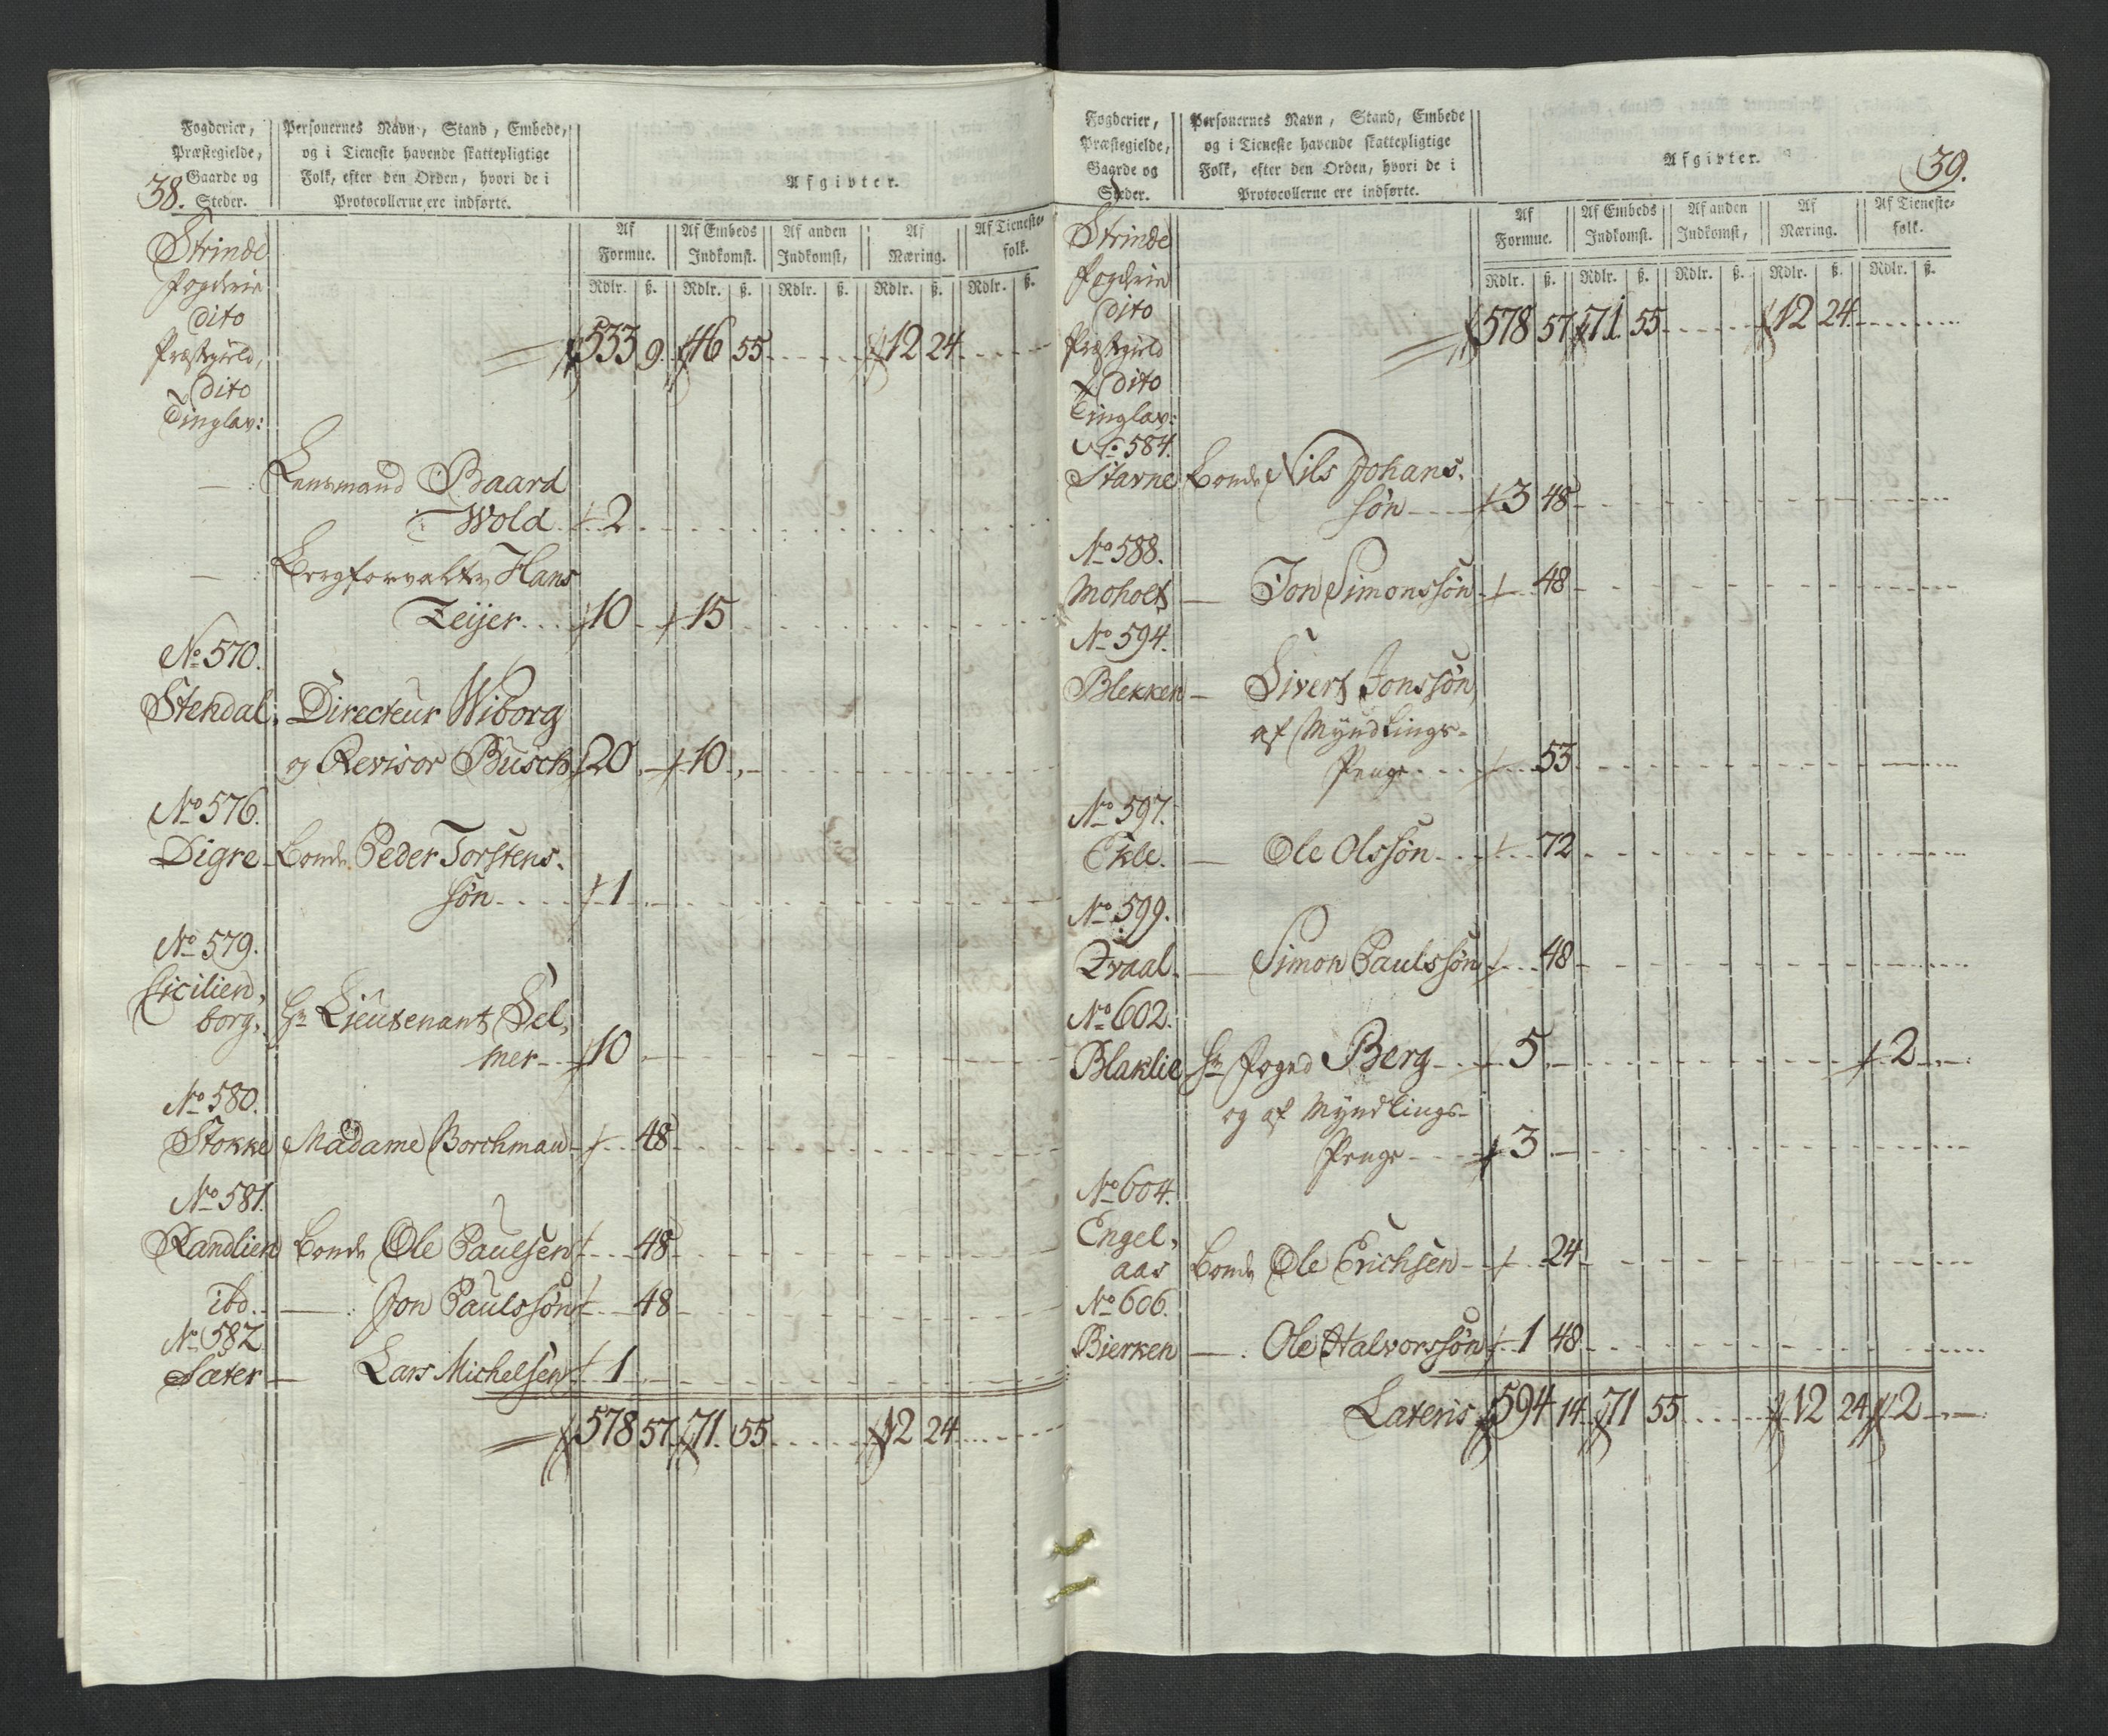 38.
Fogderier,
Præstegielde,
Gaarde og
Steder.
Personernes Navn, Stand, Embede,
og i Tieneste havende skattepligtige
Folk, efter den Orden, hvori de i
Protocollerne ere indførte.
Afgivter.
Af Formue. Af Embeds Indkomst. Af anden Indkomst, Af Næring. Af Tieneste-folk.
Rdlr. ß. Rdlr. ß. Rdlr. ß. Rdlr. ß. Rdlr. ß.
Strinde
Fogderie
dito
Præstegield,
dito
Tinglav:
533 9. 46 55 12 24
— : Lensmand Baard
Wold 2
— : Bergforvalter Hans
Zeijer 10 15
No 570.
Stendal, Directeur Wiborg
og Revisor Busch 20 10
No 576.
Digre Bonde Peder Torstens-
søn 1
No 579.
Cicilien,
borg, Hr Lieutenant Sel,
mer 10
No 580.
Stokke Madame Borchman 48
No 581.
Randlien Bonde Ole Paulsen 48
ibd. — : Jon Paulssøn 48
No 582
Sæter — Lars Michelsen 1
578 57 71 55 12 24
39.
Fogderier,
Præstegielde,
Gaarde og
Steder.
Personernes Navn, Stand, Embede
og i Tieneste havende skattepligtige
Folk, efter den Orden, hvori de i
Protocollerne ere indførte.
Afgivter.
Af Formue. Af Embeds Indkomst. Af anden Indkomst, Af Næring. Af Tieneste-folk.
Rdlr. ß. Rdlr. ß. Rdlr. ß. Rdlr. ß. Rdlr. ß.
Strinde
Fogderie
dito
Præstegield
dito
Tinglav:
578 57 71 55 12 24
No 584.
Stavne Bonde Nils Johans-
søn 3 48
No 588.
Moholt — Jon Simonssøn 48
No 594.
Blekken — Sivert Jonssøn
af Myndlings-
Penge 53
No 597.
Ekle. — Ole Olssøn 72
No 599.
Qvaal — Simon Paulssøn 48
No 602.
Blaklie Hr Foged Berg 5 2
og af Myndlings-
Penge 3
No 604.
Engel,
aas Bonde Ole Erichsen 24
No 606.
Bierken — : Ole Halvorssøn 1 48
Lateris 594 14 71 55 12 24 2